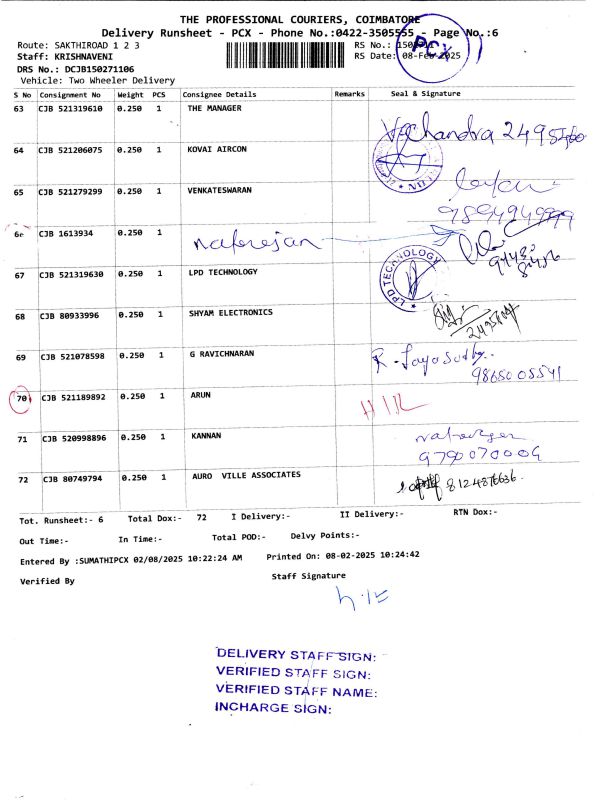 THE PROFESSIONAL COURIERS, COIMBATORE
Delivery Runsheet - PCX - Phone No.:0422-3505555 - Page No.:6
Route: SAKTHIROAD 1 2 3
RS No.:
Staff: KRISHNAVENI
RS Date: 08-Feb-2025
PCX
DRS No.: DCJB150271106
Vehicle: Two Wheeler Delivery
S No Consignment No Weight PCS Consignee Details Remarks Seal & Signature
63 CJB 521319610 0.250 1 THE MANAGER
Chandra
64 CJB 521206075 0.250 1 KOVAI AIRCON
65 CJB 521279299 0.250 1 VENKATESWARAN
66 CJB 1613934 0.250 1
67 CJB 521319630 0.250 1 LPD TECHNOLOGY
LPD TECHNOLOGY
68 CJB 80933996 0.250 1 SHYAM ELECTRONICS
69 CJB 521078598 0.250 1 G RAVICHNARAN
9865005541
70 CJB 521189892 0.250 1 ARUN
71 CJB 520998896 0.250 1 KANNAN
72 CJB 80749794 0.250 1 AURO VILLE ASSOCIATES
8124876636.
Tot. Runsheet:- 6 Total Dox:- 72 I Delivery:- II Delivery:- RTN Dox:-
Out Time:- In Time:- Total POD:- Delvy Points:-
Entered By :SUMATHIPCX 02/08/2025 10:22:24 AM Printed On: 08-02-2025 10:24:42
Verified By Staff Signature
DELIVERY STAFF SIGN:
VERIFIED STAFF SIGN:
VERIFIED STAFF NAME:
INCHARGE SIGN: